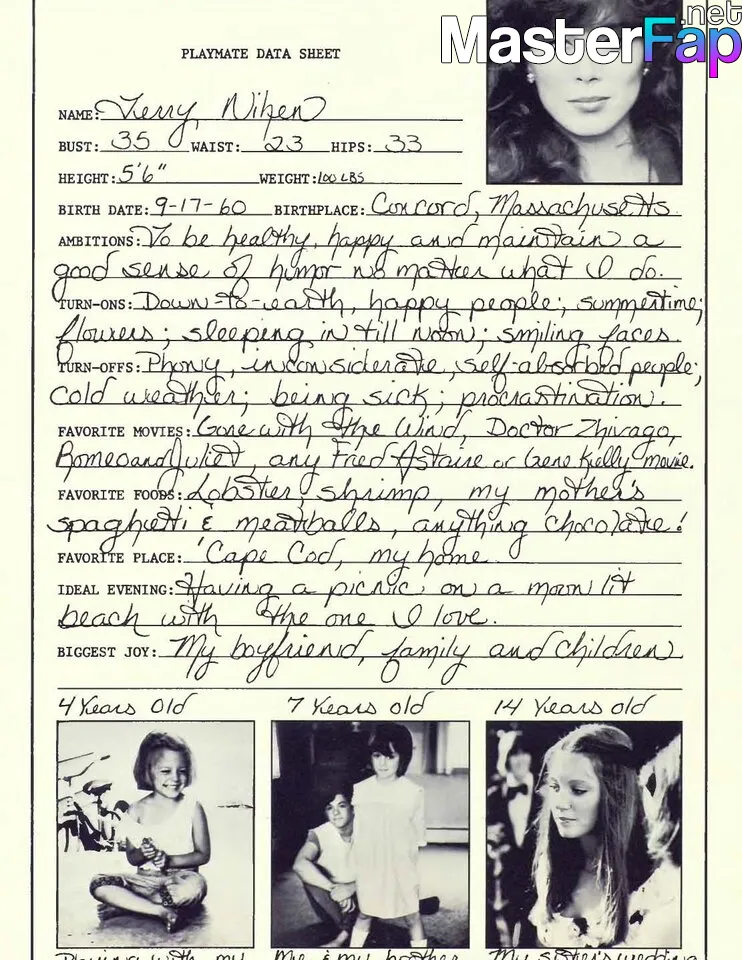 .net
MasterFap
PLAYMATE DATA SHEET
NAME: Terry Nihen
BUST: 35 WAIST: 23 HIPS: 33
HEIGHT: 5'6" WEIGHT: 100 LBS
BIRTH DATE: 9-17-60 BIRTHPLACE: Concord, Massachusetts.
AMBITIONS: To be healthy, happy and maintain a
good sense of humor no matter what I do.
TURN-ONS: Down-to-earth, happy people; summertime;
flowers; sleeping in till noon; smiling faces.
TURN-OFFS: Phony, inconsiderate, self-absorbed people;
cold weather; being sick; procrastination.
FAVORITE MOVIES: Gone with the Wind, Doctor Zhivago,
Romeo and Juliet, any Fred Astaire or Gene Kelly movie.
FAVORITE FOODS: Lobster, shrimp, my mother's
spaghetti & meatballs, anything chocolate!
FAVORITE PLACE: Cape Cod, my home
IDEAL EVENING: Having a picnic on a moon lit
beach with the one I love.
BIGGEST JOY: My boyfriend, family and children
4 Years Old 7 Years old 14 Years old
Playing with my Me & my brother My sister's wedding